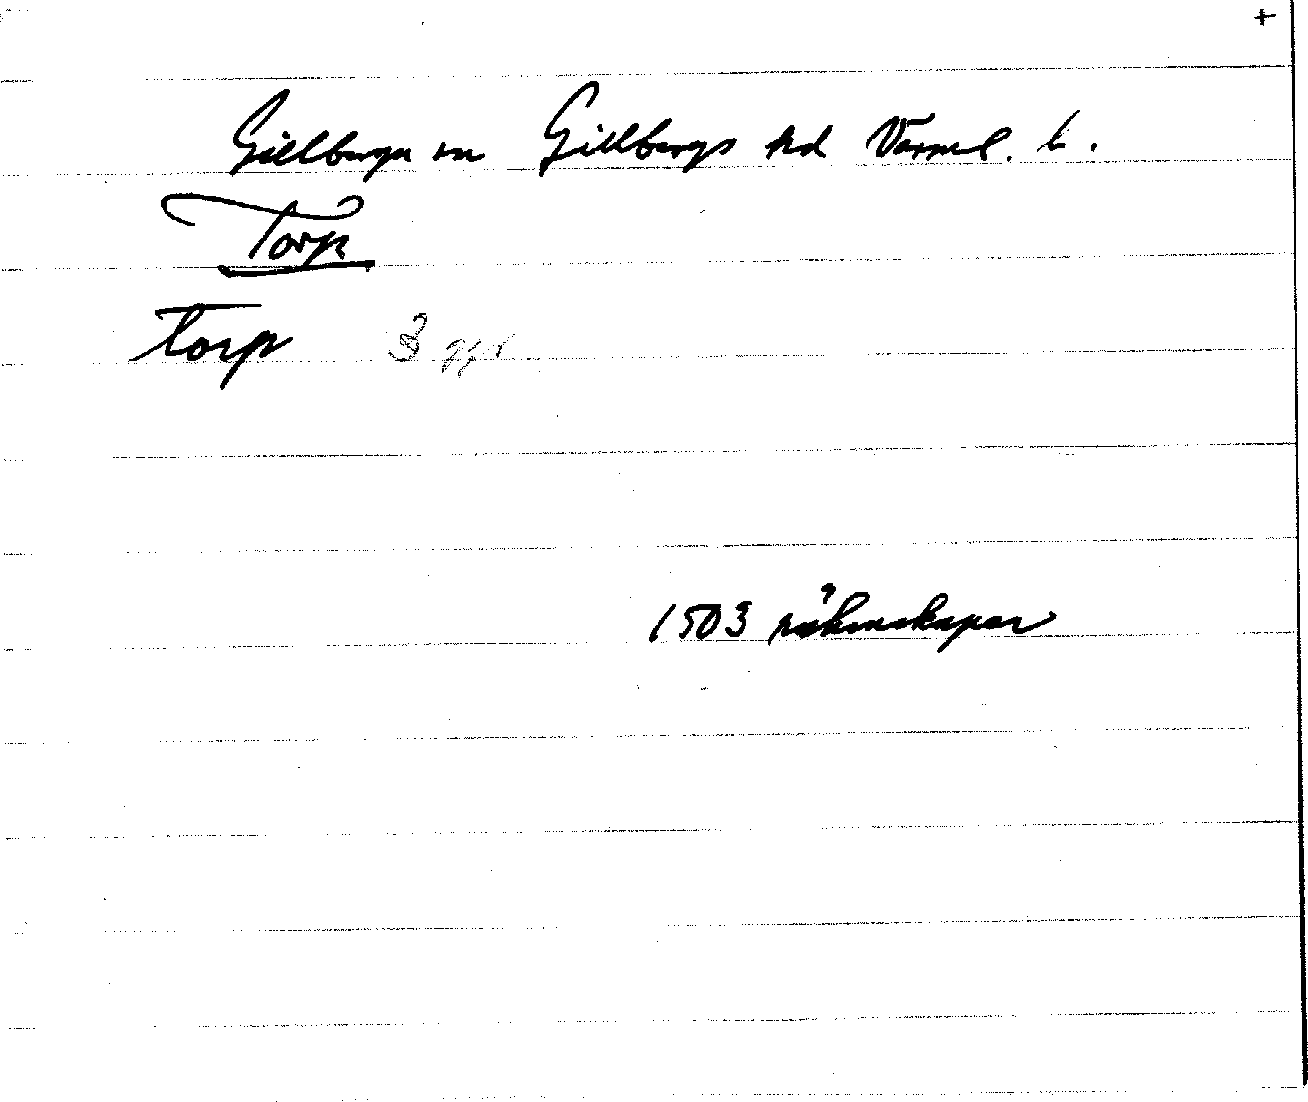 +
Gillberga sn Gillbergs hd Värml. l.
Torp
torp 3 ggr
1503 räkenskaper